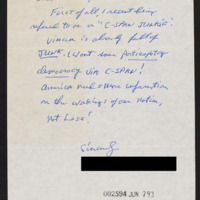 First of all I resent being
refered to as a "C-SPAN JUNKIE".
vision is already full of
JUNK. I want some Participatory
democracy VIA C-SPAN!
America needs more information
on the workings of our nation,
not Less!
Sincerely
002594 JUN 793